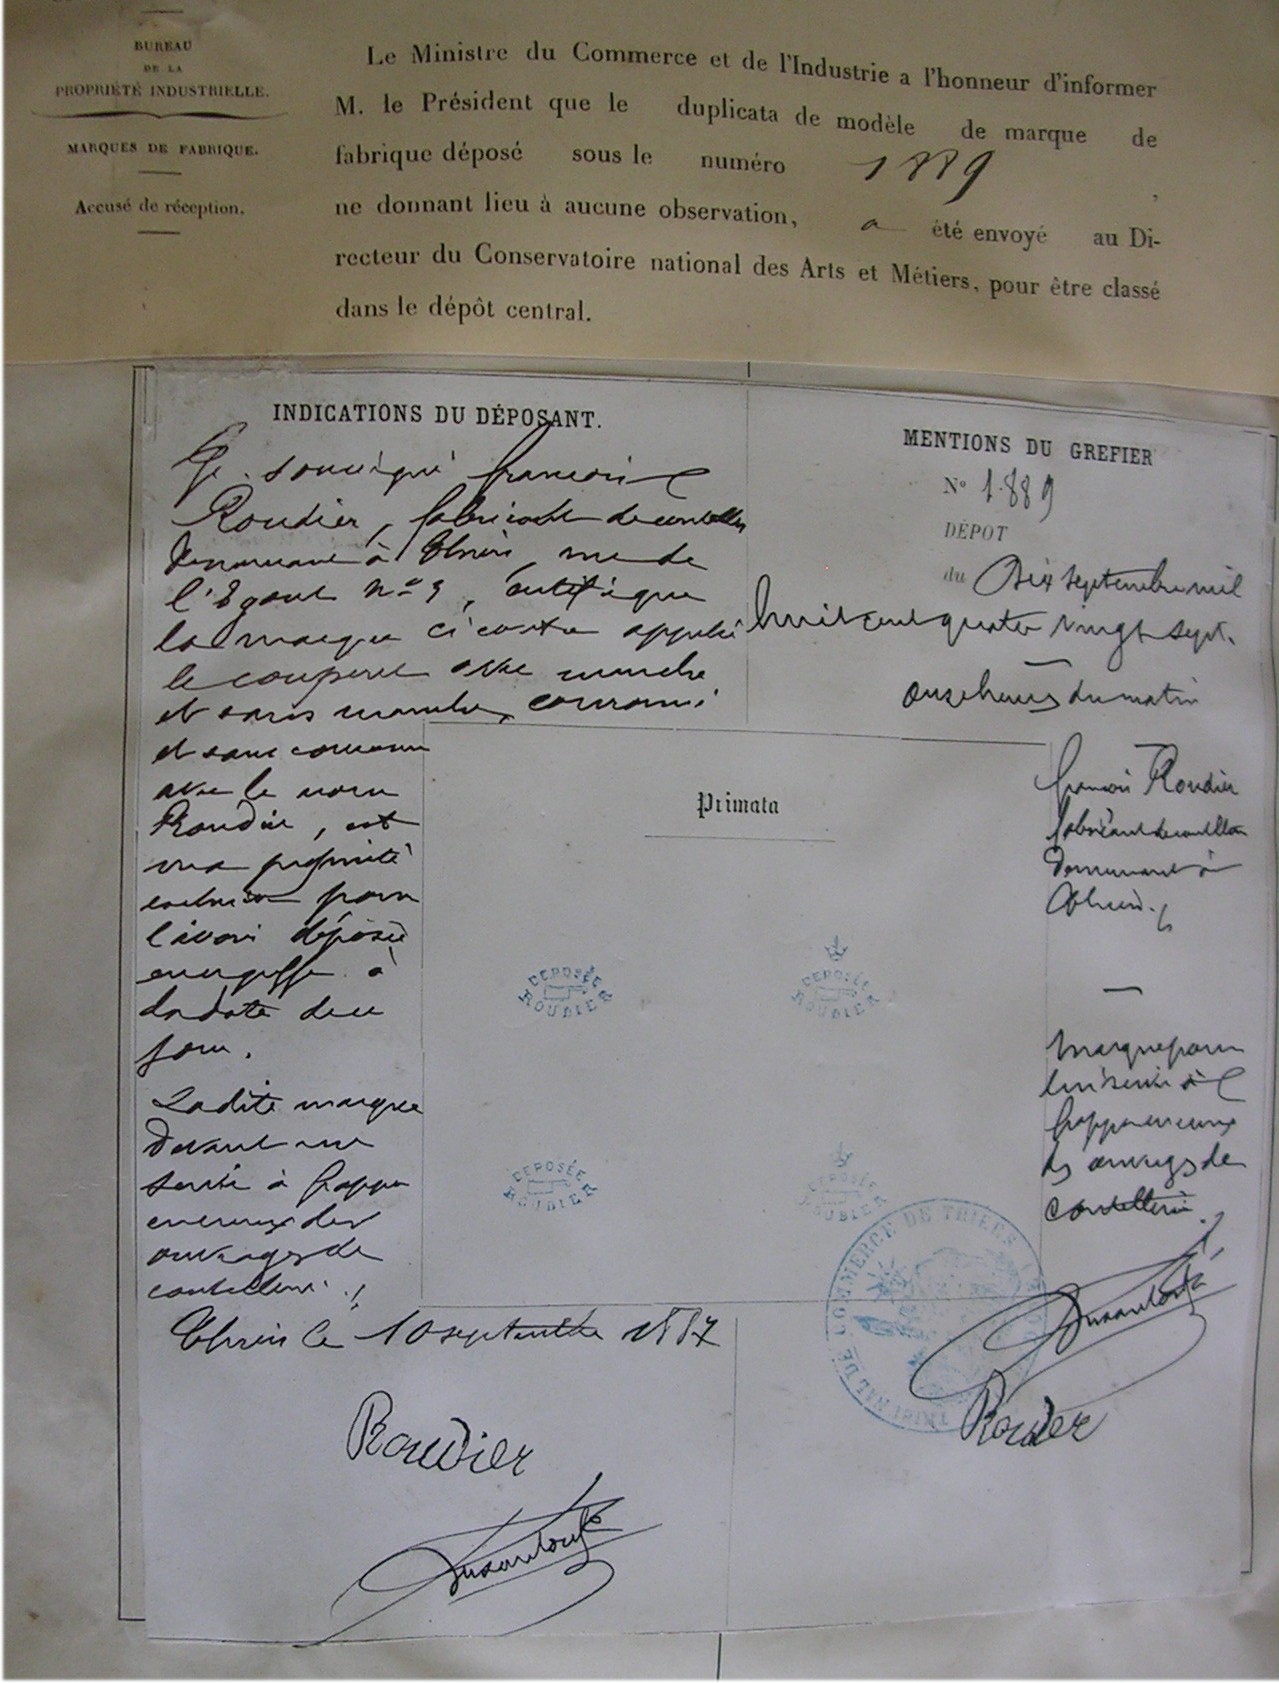 BUREAU
DE LA
PROPRIÉTÉ INDUSTRIELLE.
MARQUES DE FABRIQUE.
Accusé de réception.
Le Ministre du Commerce et de l'Industrie a l'honneur d'informer
M. le Président que le duplicata de modèle de marque de
fabrique déposé sous le numéro 1889 ,
ne donnant lieu à aucune observation, a été envoyé au Di-
recteur du Conservatoire national des Arts et Métiers, pour être classé
dans le dépôt central.
INDICATIONS DU DÉPOSANT.
Je soussigné françois
Roudier, fabricant de couteaux
demeurant à Thiers rue de
l'Egout n°
la marque ci contre appelée
le couperet avec manche
et sans manche, couronné
et sans couronne
avec le nom
Roudier, est
ma propriété
exclusive pour
l'avoir déposée
au greffe à
la date de ce
jour.
Ladite marque
devant me
servir à frapper
en creux des
ouvrages de
coutellerie.
Thiers le 10 septembre 1887
Roudier
Dusautoy
MENTIONS DU GREFIER
N° 1.889
DÉPOT
du Dix septembre mil
huit cent quatre vingt sept.
onze heures du matin
françois Roudier
fabricant de couteaux
demeurant à
Thiers.
Marque pour
lui servir à
frapper en creux
des ouvrages de
coutellerie.
Roudier
Primata
DEPOSÉE
ROUDIER
DEPOSÉE
ROUDIER
DEPOSÉE
ROUDIER
DEPOSÉE
ROUDIER
TRIBUNAL DE COMMERCE DE THIERS